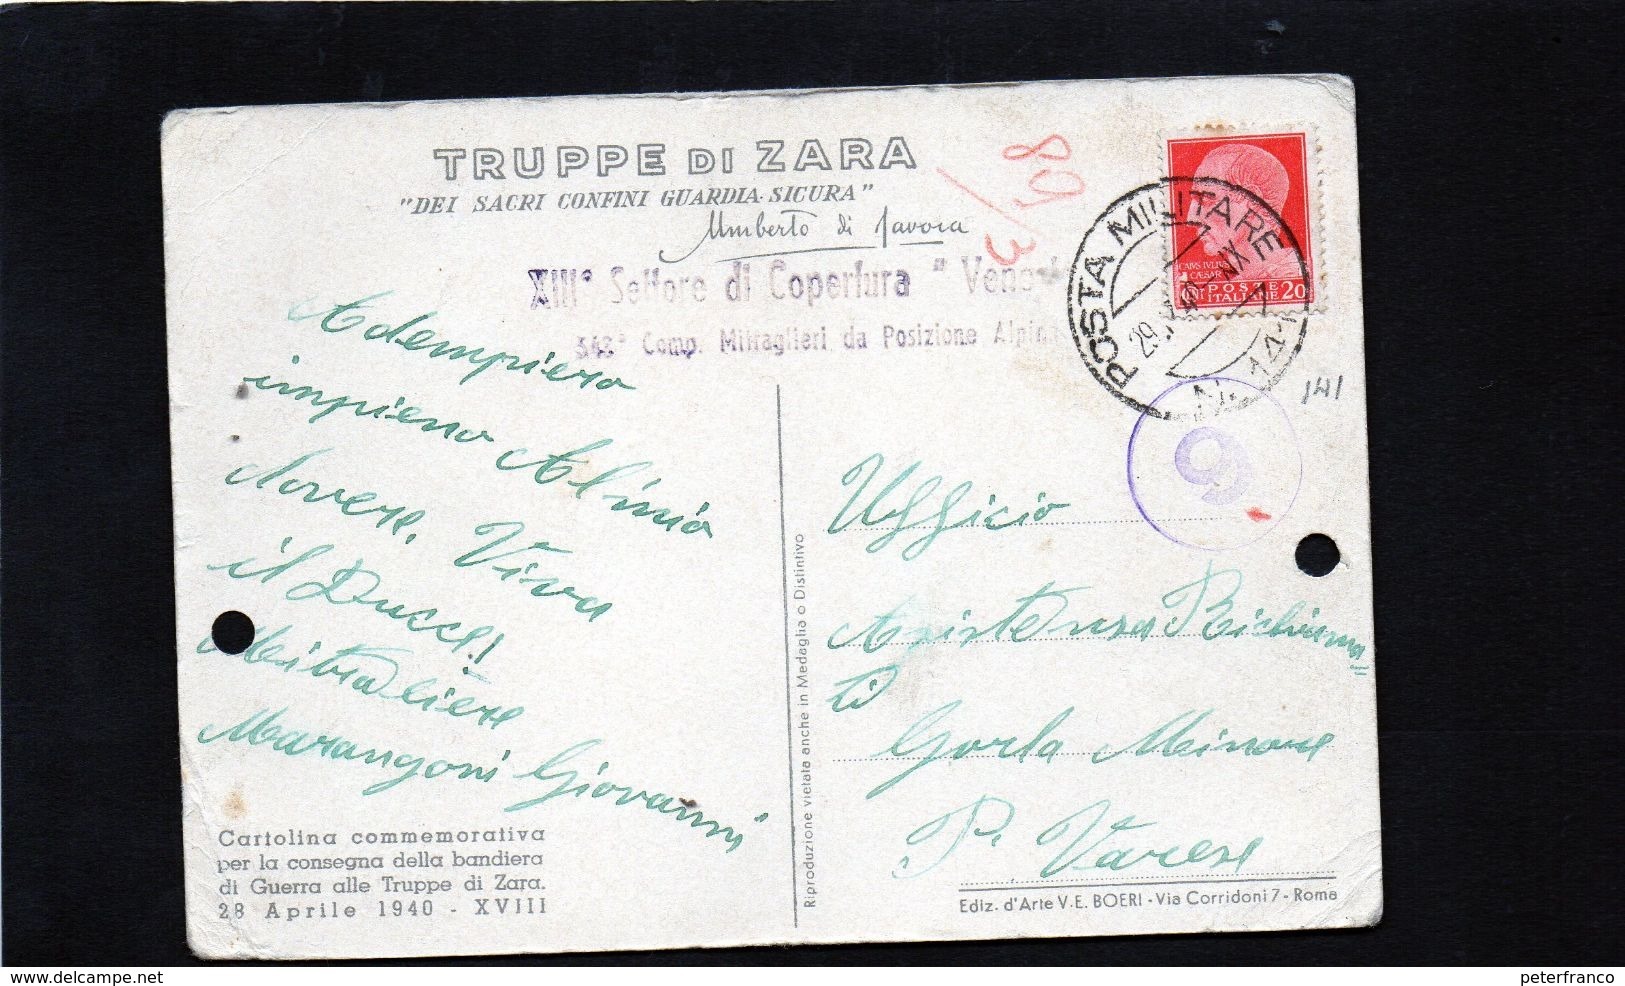 TRUPPE DI ZARA
"DEI SACRI CONFINI GUARDIA SICURA"
Umberto di Savoia
80/3
XIII° Settore di Copertura "Vene
348° Comp. Mitraglieri da Posizione Alpina
POSTA MILITARE
N. 141
29.
CAIVS IVLIVS
CAESAR
POSTE
ITALIANE 20
141
9
Adempiero
impieno Al mio
dovere. Viva
il Ducce!
Mitragliere
Marangoni Giovanni
Cartolina commemorativa
per la consegna della bandiera
di Guerra alle Truppe di Zara.
28 Aprile 1940 - XVIII
Riproduzione vietata anche in Medaglia o Distintivo
Ufficio
Assistensa Richiama=
ti
Gorla Minore
P. Varese
Ediz. d'Arte V.E. BOERI - Via Corridoni 7 - Roma
www.delcampe.net
peterfranco